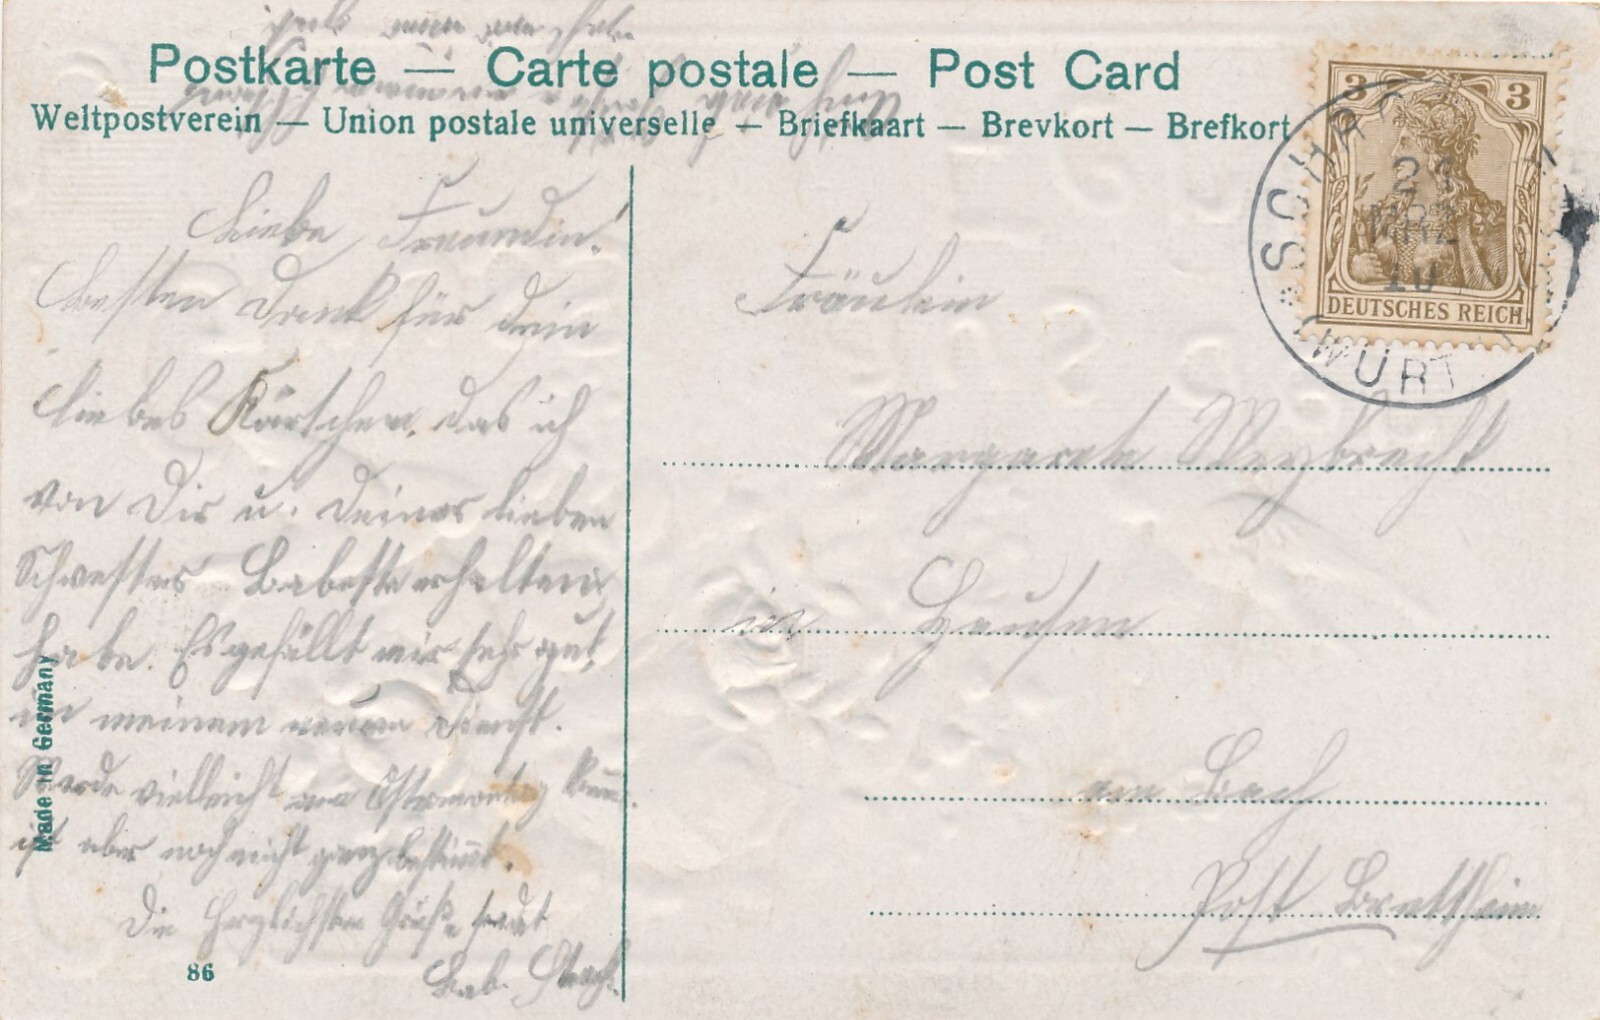 Postkarte — Carte postale — Post Card
Weltpostverein — Union postale universelle — Briefkaart — Brevkort — Brefkort
3 3
DEUTSCHES REICH
SCHR
21
MRZ
10
WÜRT
Liebe Freundin!
Besten Dank für dein
liebes Kärtchen, das ich
von Dir u. Deiner lieben
Schwester Babette erhalten
habe. Es gefällt mir sehr gut,
in meinem neuen Dienst.
Werde vielleicht am Ostermontag komm.
ist aber noch nicht ganz bestimmt.
Die herzlichsten Grüße sendet
Bab.
Fräulein
Margarete Weybrecht
in Hausen
am Bach
Post Brettheim
Made in Germany
86